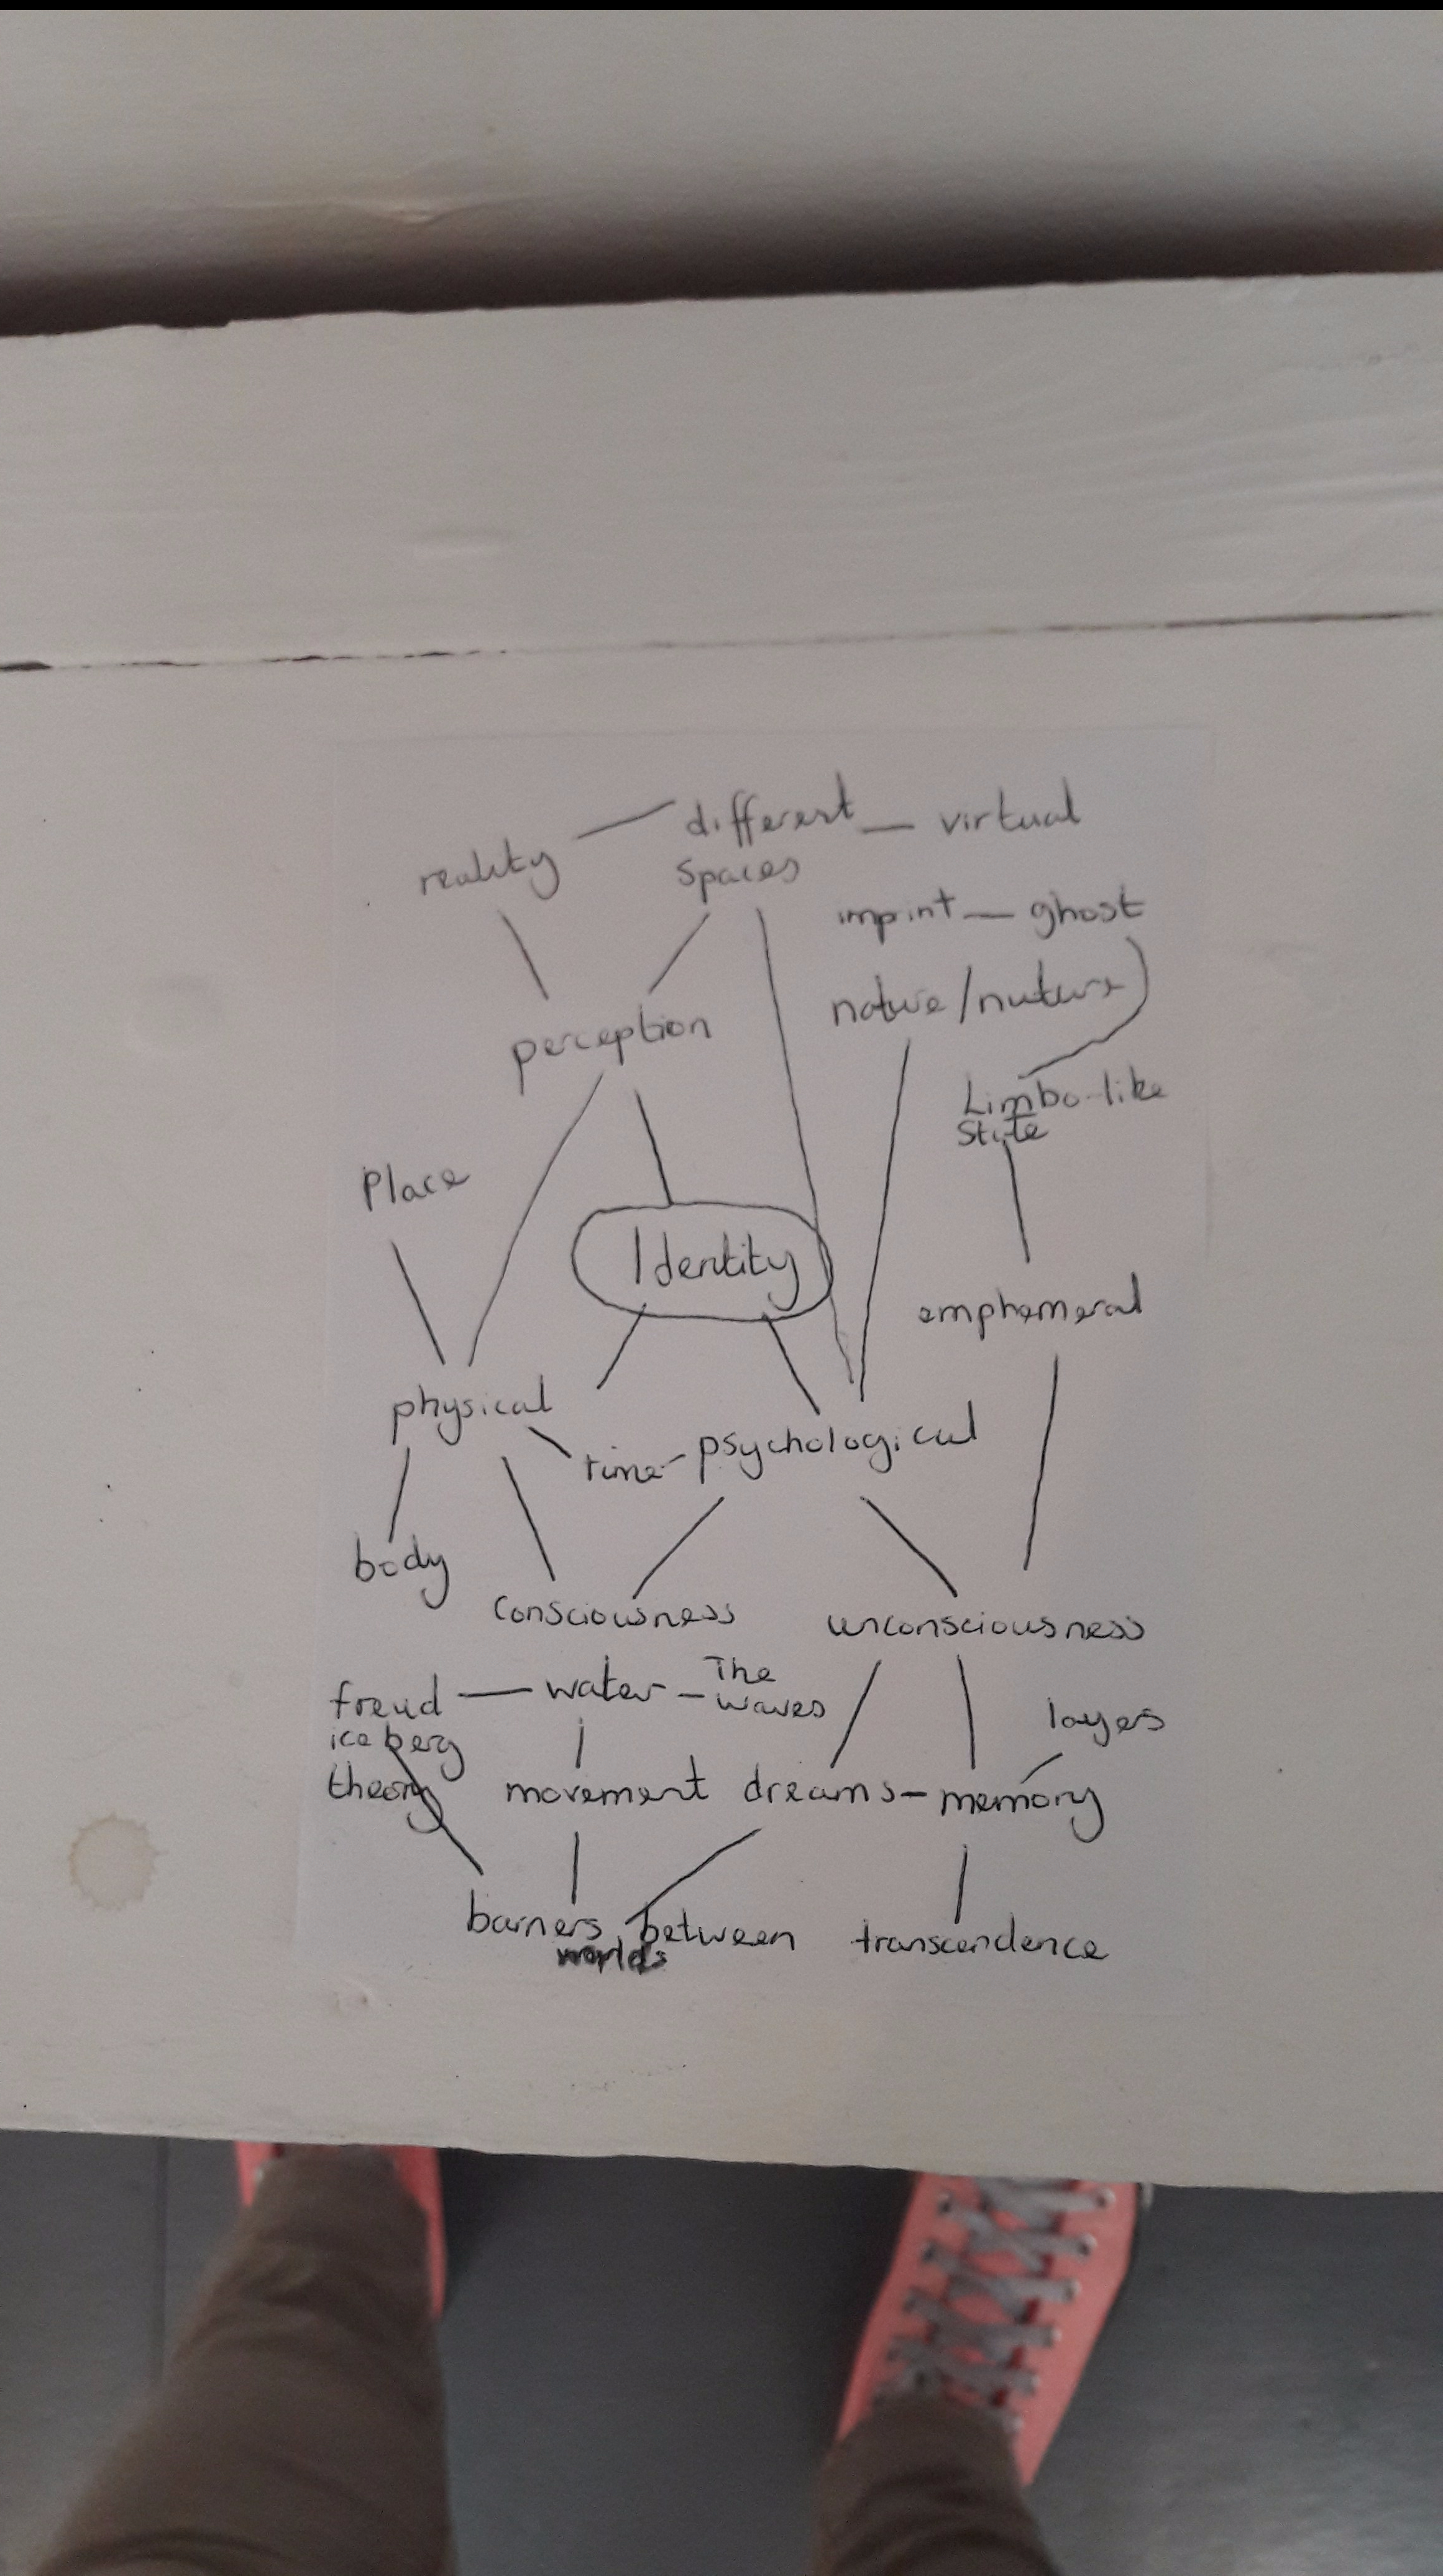 different — virtual
reality
spaces
imprint — ghost
nature/nuture
perception
Limbo-like
State
Place
Identity
emphemeral
physical
time - psychological
body
consciousness
unconsciousness
freud — water - The
waves
iceberg
layers
theory
movement
dreams - memory
barriers between
worlds
transcendence